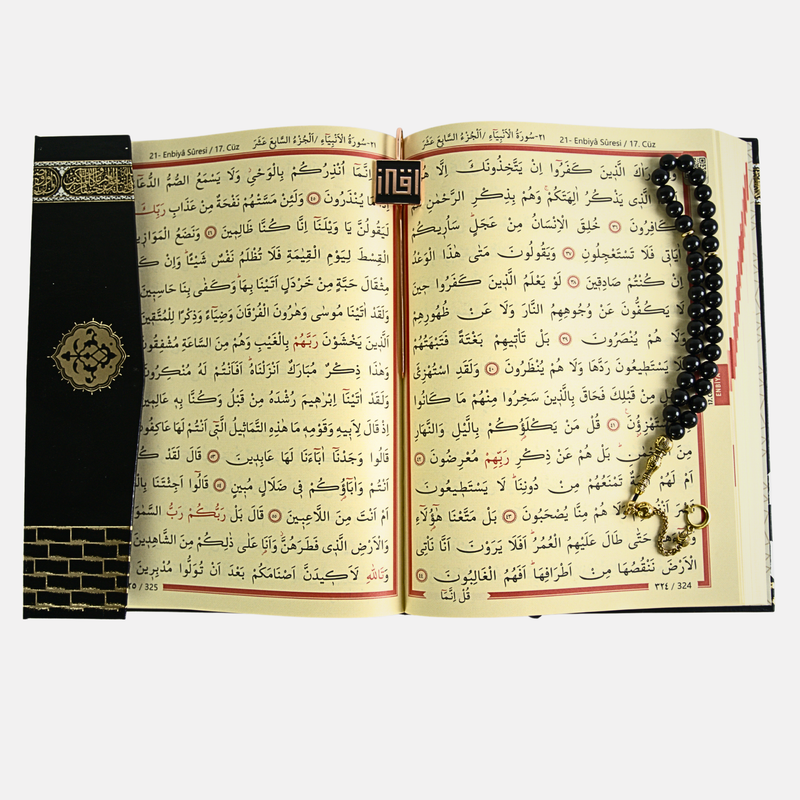 21- Enbiyâ Sûresi / 17. Cüz ٢١-سُورَةُ الْاَنْبِيَٓاءِ / اَلْجُزْءُ السَّابِعَ عَشَرَ
الَّذ۪ينَ كَفَرُٓوا اِنْ يَتَّخِذُونَكَ اِلَّا
الَّذ۪ي يَذْكُرُ اٰلِهَتَكُمْۚ وَهُمْ بِذِكْرِ الرَّحْمٰنِ
كَافِرُونَ ٣٦ خُلِقَ الْاِنْسَانُ مِنْ عَجَلٍۜ سَاُر۪يكُمْ
اٰيَات۪ي فَلَا تَسْتَعْجِلُونِ ٣٧ وَيَقُولُونَ مَتٰى هٰذَا الْوَعْدُ
اِنْ كُنْتُمْ صَادِق۪ينَ ٣٨ لَوْ يَعْلَمُ الَّذ۪ينَ كَفَرُوا ح۪ينَ
لَا يَكُفُّونَ عَنْ وُجُوهِهِمُ النَّارَ وَلَا عَنْ ظُهُورِهِمْ
وَلَا هُمْ يُنْصَرُونَ ٣٩ بَلْ تَأْت۪يهِمْ بَغْتَةً فَتَبْهَتُهُمْ
فَلَا يَسْتَط۪يعُونَ رَدَّهَا وَلَا هُمْ يُنْظَرُونَ ٤٠ وَلَقَدِ اسْتُهْزِئَ
مِنْ قَبْلِكَ فَحَاقَ بِالَّذ۪ينَ سَخِرُوا مِنْهُمْ مَا كَانُوا
٤١ قُلْ مَنْ يَكْلَؤُ۬كُمْ بِالَّيْلِ وَالنَّهَارِ
مِنَ بَلْ هُمْ عَنْ ذِكْرِ رَبِّهِمْ مُعْرِضُونَ ٤٢
اَمْ لَهُمْ تَمْنَعُهُمْ مِنْ دُونِنَاۜ لَا يَسْتَط۪يعُونَ
هُمْ مِنَّا يُصْحَبُونَ ٤٣ بَلْ مَتَّعْنَا هٰٓؤُ۬لَٓاءِ
حَتّٰى طَالَ عَلَيْهِمُ الْعُمُرُۜ اَفَلَا يَرَوْنَ اَنَّا نَأْتِي
الْاَرْضَ نَنْقُصُهَا مِنْ اَطْرَافِهَاۜ اَفَهُمُ الْغَالِبُونَ ٤٤
٣٢٤ / 324
قُلْ اِنَّمَٓا
ENBİYÂ
21- Enbiyâ Sûresi / 17. Cüz ٢١-سُورَةُ الْاَنْبِيَٓاءِ / اَلْجُزْءُ السَّابِعَ عَشَرَ
اِنَّمَٓا اُنْذِرُكُمْ بِالْوَحْيِۘ وَلَا يَسْمَعُ الصُّمُّ
يُنْذَرُونَ ٤٥ وَلَئِنْ مَسَّتْهُمْ نَفْحَةٌ مِنْ عَذَابِ رَبِّكَ
لَيَقُولُنَّ يَا وَيْلَنَٓا اِنَّا كُنَّا ظَالِم۪ينَ ٤٦ وَنَضَعُ
الْقِسْطَ لِيَوْمِ الْقِيٰمَةِ فَلَا تُظْلَمُ نَفْسٌ شَيْـًٔاۜ وَاِنْ
مِثْقَالَ حَبَّةٍ مِنْ خَرْدَلٍ اَتَيْنَا بِهَاۜ وَكَفٰى بِنَا حَاسِب۪ينَ
وَلَقَدْ اٰتَيْنَا مُوسٰى وَهٰرُونَ الْفُرْقَانَ وَضِيَٓاءً وَذِكْرًا لِلْمُتَّق۪ينَ
اَلَّذ۪ينَ يَخْشَوْنَ رَبَّهُمْ بِالْغَيْبِ وَهُمْ مِنَ السَّاعَةِ مُشْفِقُونَ
وَهٰذَا ذِكْرٌ مُبَارَكٌ اَنْزَلْنَاهُۜ اَفَاَنْتُمْ لَهُ مُنْكِرُونَ
وَلَقَدْ اٰتَيْنَٓا اِبْرٰه۪يمَ رُشْدَهُ مِنْ قَبْلُ وَكُنَّا بِه۪ عَالِم۪ينَ
اِذْ قَالَ لِاَب۪يهِ وَقَوْمِه۪ مَا هٰذِهِ التَّمَاث۪يلُ الَّت۪ٓي اَنْتُمْ لَهَا عَاكِفُونَ
قَالُوا وَجَدْنَٓا اٰبَٓاءَنَا لَهَا عَابِد۪ينَ ٥٣ قَالَ لَقَدْ
اَنْتُمْ وَاٰبَٓاؤُ۬كُمْ ف۪ي ضَلَالٍ مُب۪ينٍ ٥٤ قَالُٓوا اَجِئْتَنَا
اَمْ اَنْتَ مِنَ اللَّاعِب۪ينَ ٥٥ قَالَ بَلْ رَبُّكُمْ رَبُّ
وَالْاَرْضِ الَّذ۪ي فَطَرَهُنَّۘ وَاَنَا۬ عَلٰى ذٰلِكُمْ مِنَ الشَّاهِد۪ينَ
وَتَاللّٰهِ لَاَك۪يدَنَّ اَصْنَامَكُمْ بَعْدَ اَنْ تُوَلُّوا مُدْبِر۪ينَ
/ 325